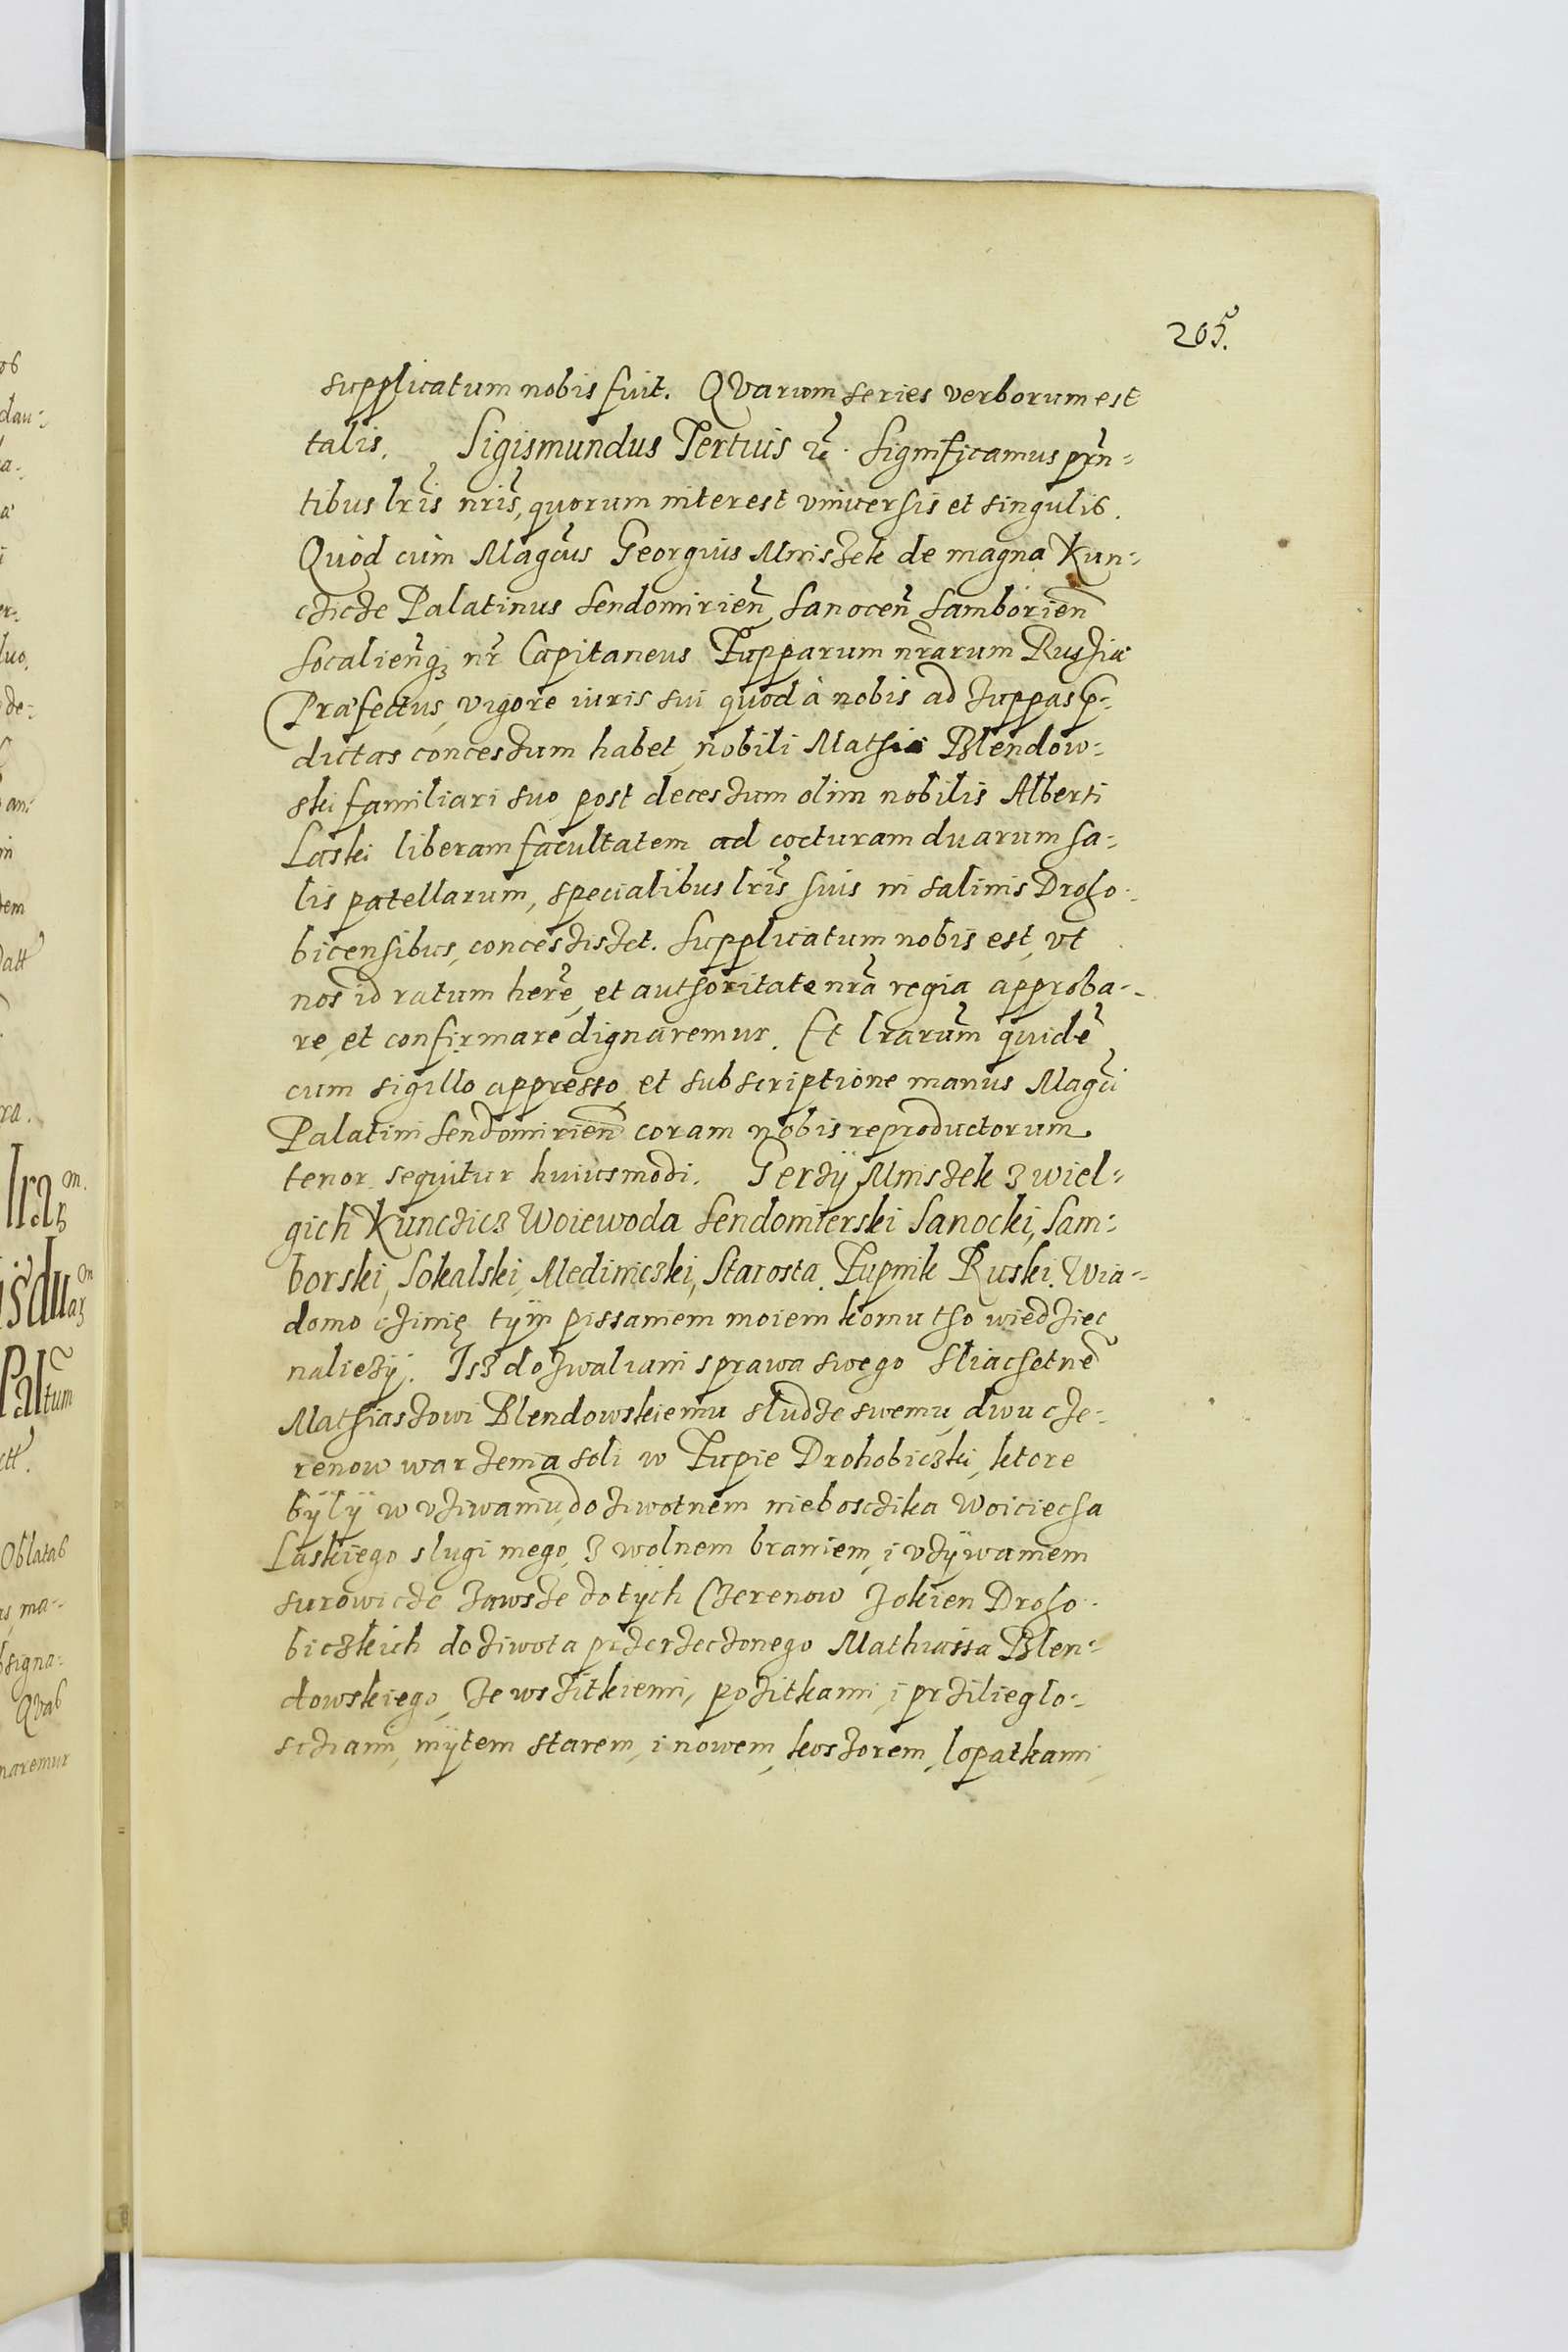 205.
supplicatum nobis fuit. QVarum series verborum est
talis. Sigismundus Tertius &c. Significamus pñ-
tibus lris nris, quorum interest vniuersis et singulis.
Quod cum Magcus Georgius Mniszek de magna Kun-
czicze Palatinus Sendomirien Sanocen Samborien
Socalienq nr Capitaneus Zupparum nrarum Russiæ
Præfectus, vigore iuris sui quod à nobis ad zuppas p-
dictas concessum habet, nobili Mathiæ Blendow-
ski familiari suo post decessum olim nobilis Alberti
Laski liberam facultatem ad cocturam duarum sa-
lis patellarum, specialibus lris suis in salinis Droho-
bicensibus, concessisset. Supplicatum nobis est, vt
nos id ratum here, et authoritate nra regia approba-
re, et confirmare dignaremur. Et lrarum quidē
cum sigillo appresso et subscriptione manus Magci
Palatini Sendomirien coram nobis reproductorum
tenor sequitur huiusmodi. Gerzÿ Mniszek z wiel-
gich Kunczicz Woiewoda Sendomierski Sanocki, Sam-
borski, Sokalski, Mediniczki, Starosta. Zupnik Ruski. Wia-
domo czinię tÿm pissaniem moiem komu tho wiedziec
naliezÿ. Isz dozwaliam sprawa swego Sliachetne
Mathiaszowi Blendowskiemu sludze swemu, dwu cze-
renow warzenia soli w Zupie Drohobiczki, ktore
bÿlÿ w vziwaniu, doziwotnem nieboszczika Woiciecha
Laskiego slugi mego, z wolnem braniem, i vzÿwaniem
surowicze zawsze do tÿch Czerenow zokien Droho-
biczkich do ziwota przerzeczonego Mathiassa Blen-
dowskiego, ze wszitkiemi, pozitkami, i przilieglo-
sciami, mÿtem starem, i nowem, koszorem, lopatkami,